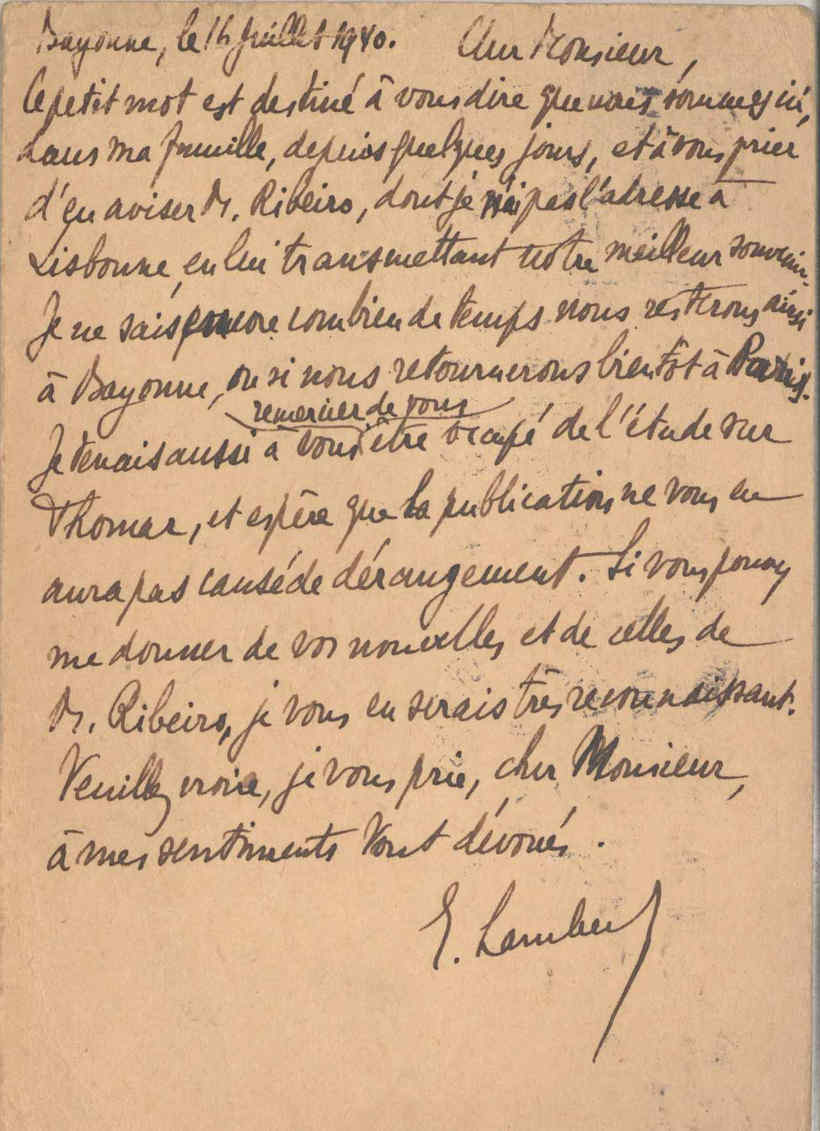 Bayonne, le 16 Juillet 1940. Cher Monsieur,
Ce petit mot est destiné à vous dire que nous sommes ici,
dans ma famille, depuis quelques jours, et à vous prier
d'en aviser M. Ribeiro, dont je n'ai pas l'adresse à
Lisbonne, en lui transmettant notre meilleur souvenir.
Je ne sais encore combien de temps nous resterons ainsi
à Bayonne, ou si nous retournerons bientôt à Paris.
remercier de vous
Je tenais aussi à vous être occupé de l'étude sur
Thomar, et espère que la publication ne vous en
aura pas causé de dérangement. Si vous pouvez
me donner de vos nouvelles et de celles de
M. Ribeiro, je vous en serais très reconnaissant.
Veuillez croire, je vous prie, cher Monsieur,
à mes sentiments tout dévoués.
E. Lambert